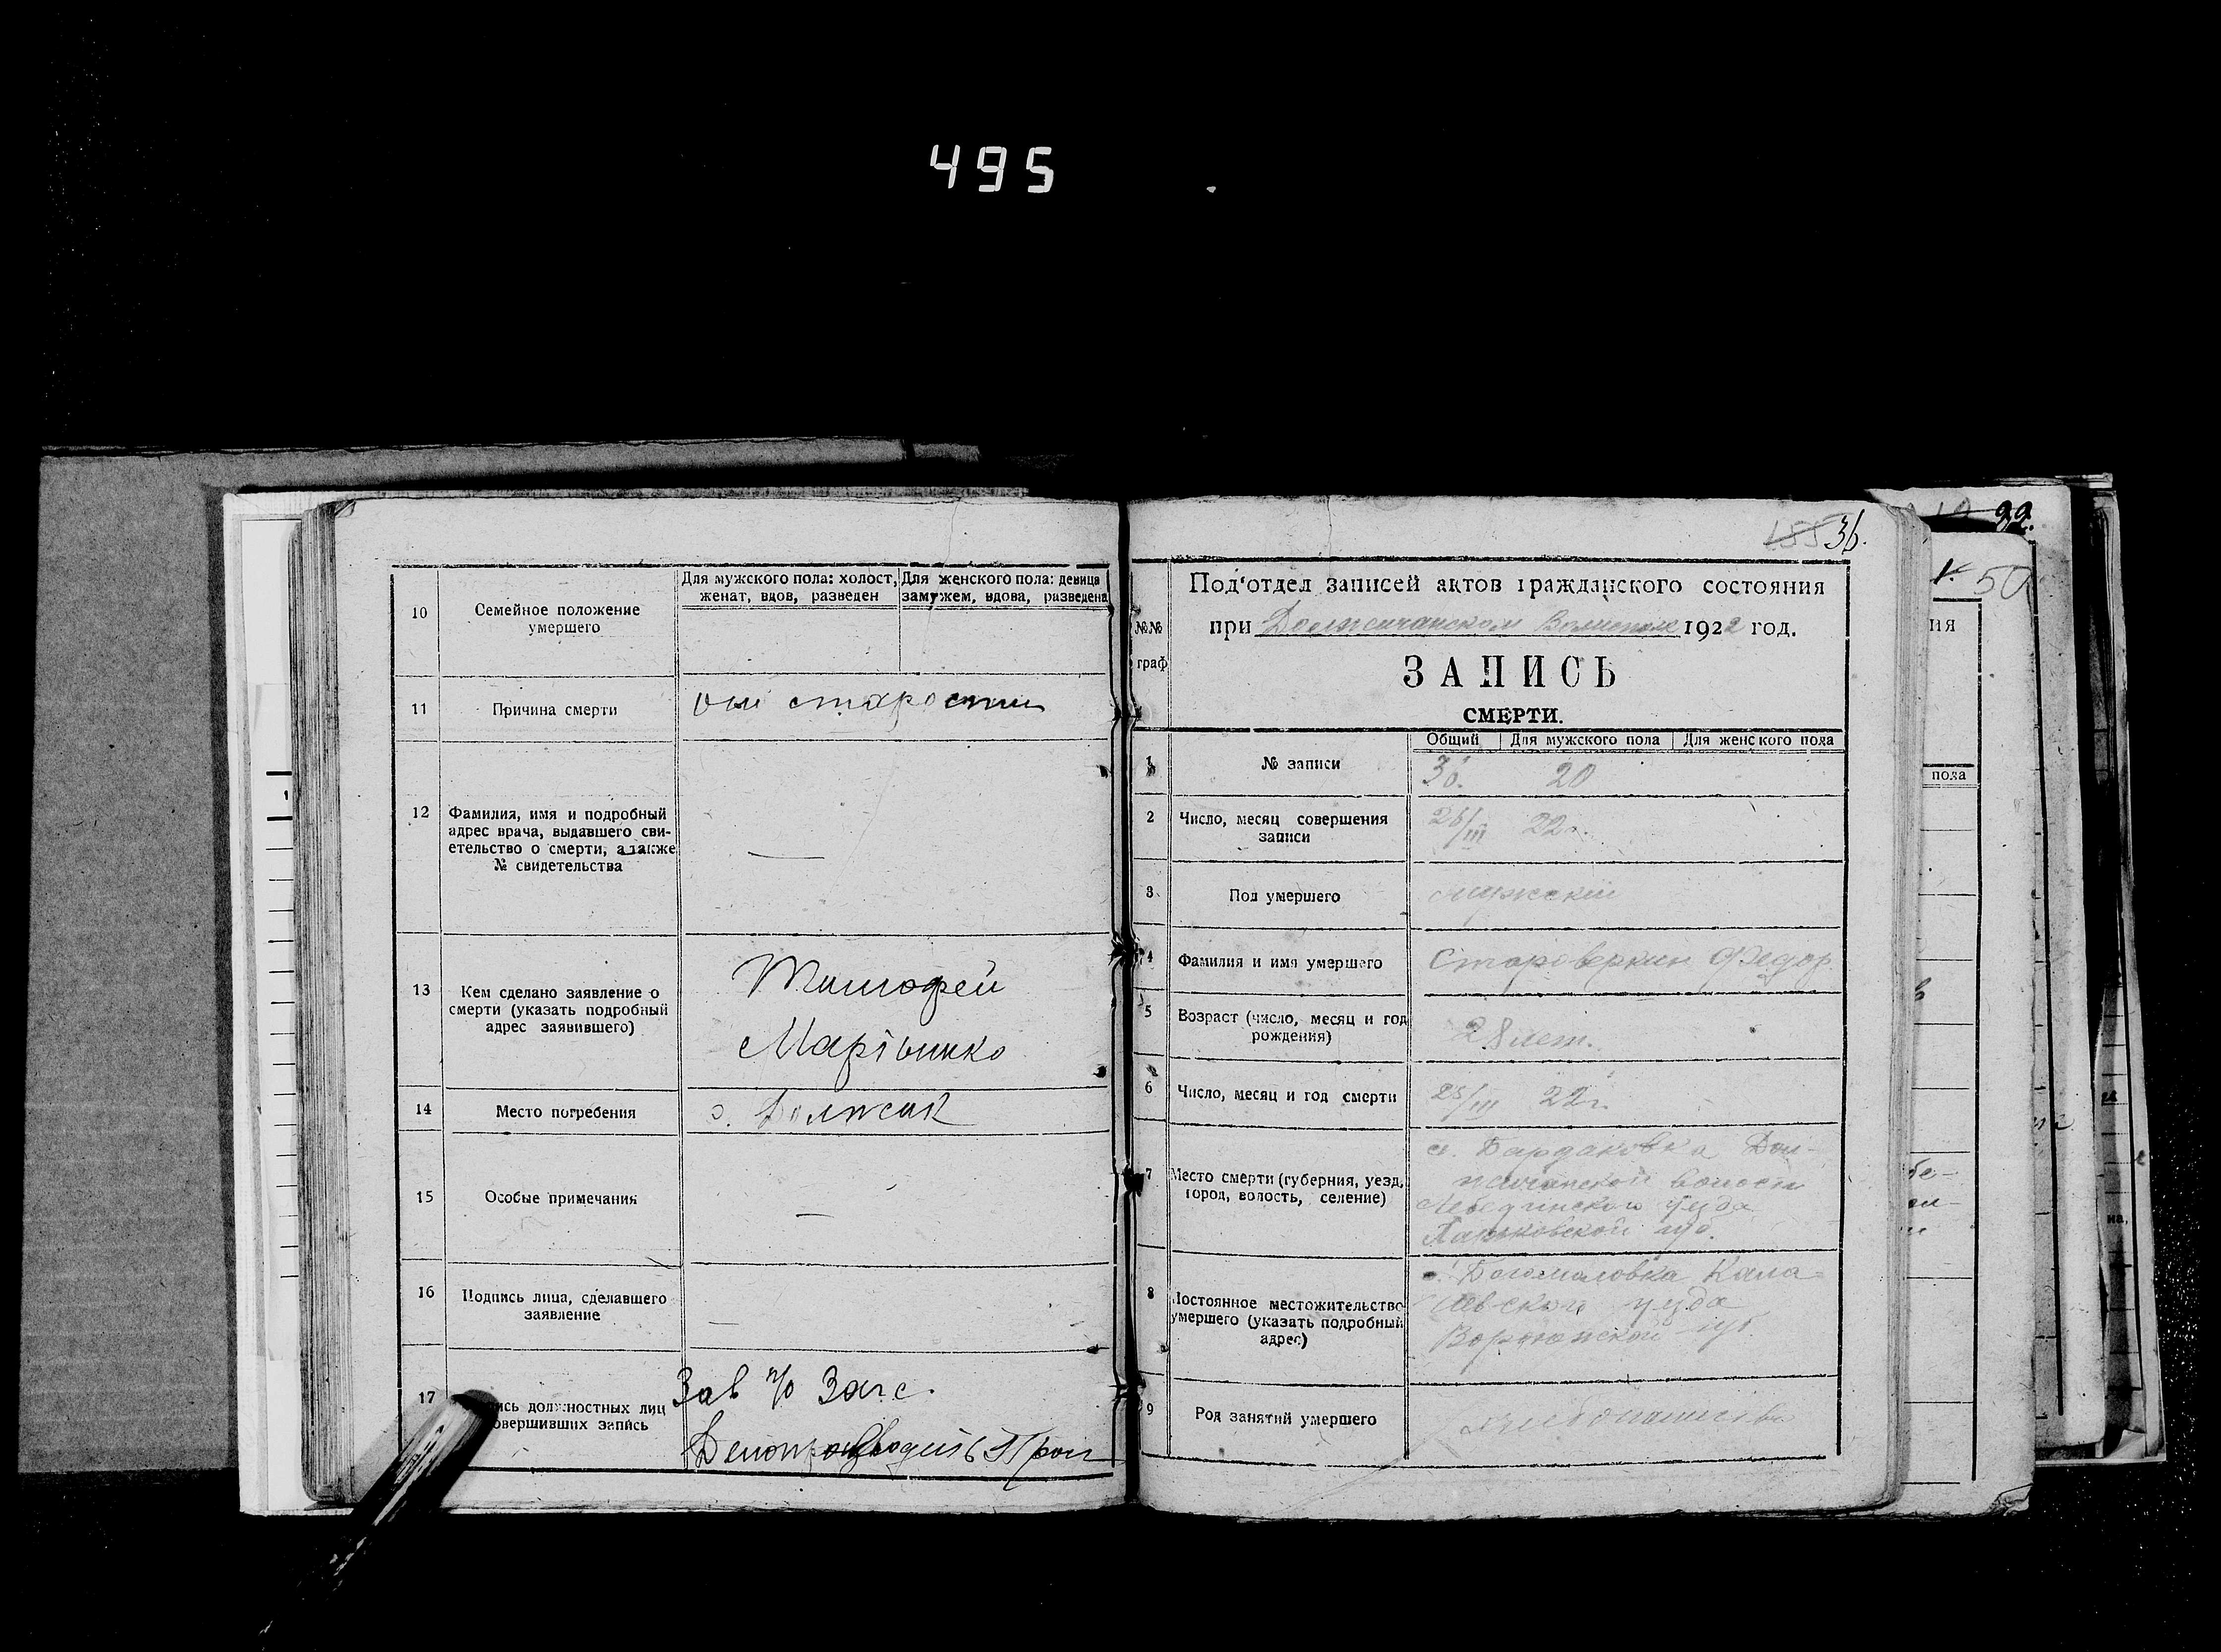 495
10
Семейное положение
умершего
Для мужского пола: холост,
женат, вдов, разведен
Для женского пола: девица
замужем, вдова, разведена
11
Причина смерти
от старости
12
Фамилия, имя и подробный
адрес врача, выдавшего сви-
етельство о смерти, а также
№ свидетельства
—
13
Кем сделано заявление о
смерти (указать подробный
адрес заявившего)
Тимофей
14
Место погребения
с. Должик
15
Особые примечания
—
16
Подпись лица, сделавшего
заявление
—
17
ись должностных лиц
овершивших запись
Зав п/о Загс.
155 36.
Под‘отдел записей актов гражданского состояния
при Должичанском 1922 год.
№№
граф
ЗАПИСЬ
СМЕРТИ.
Общий Для мужского пола Для женского пола
1
№ записи
36. 20
2
Число, месяц совершения
записи
26/III 22г.
3
Пол умершего
мужский
4
Фамилия и имя умершего
Староверкин Федор
5
Возраст (число, месяц и год
рождения)
28 лет.
6
Число, месяц и год смерти
25/III 22г.
7
Место смерти (губерния, уезд,
город, волость, селение)
с. Бардаковка Дол-
жичанской волости
Лебединского уезда
Харьковской губ.
8
Постоянное местожительство
умершего (указать подробный
адрес)
Богомоловка Кала
уезда
Воронежской губ.
9
Род занятий умершего
99.
50
ия
пола